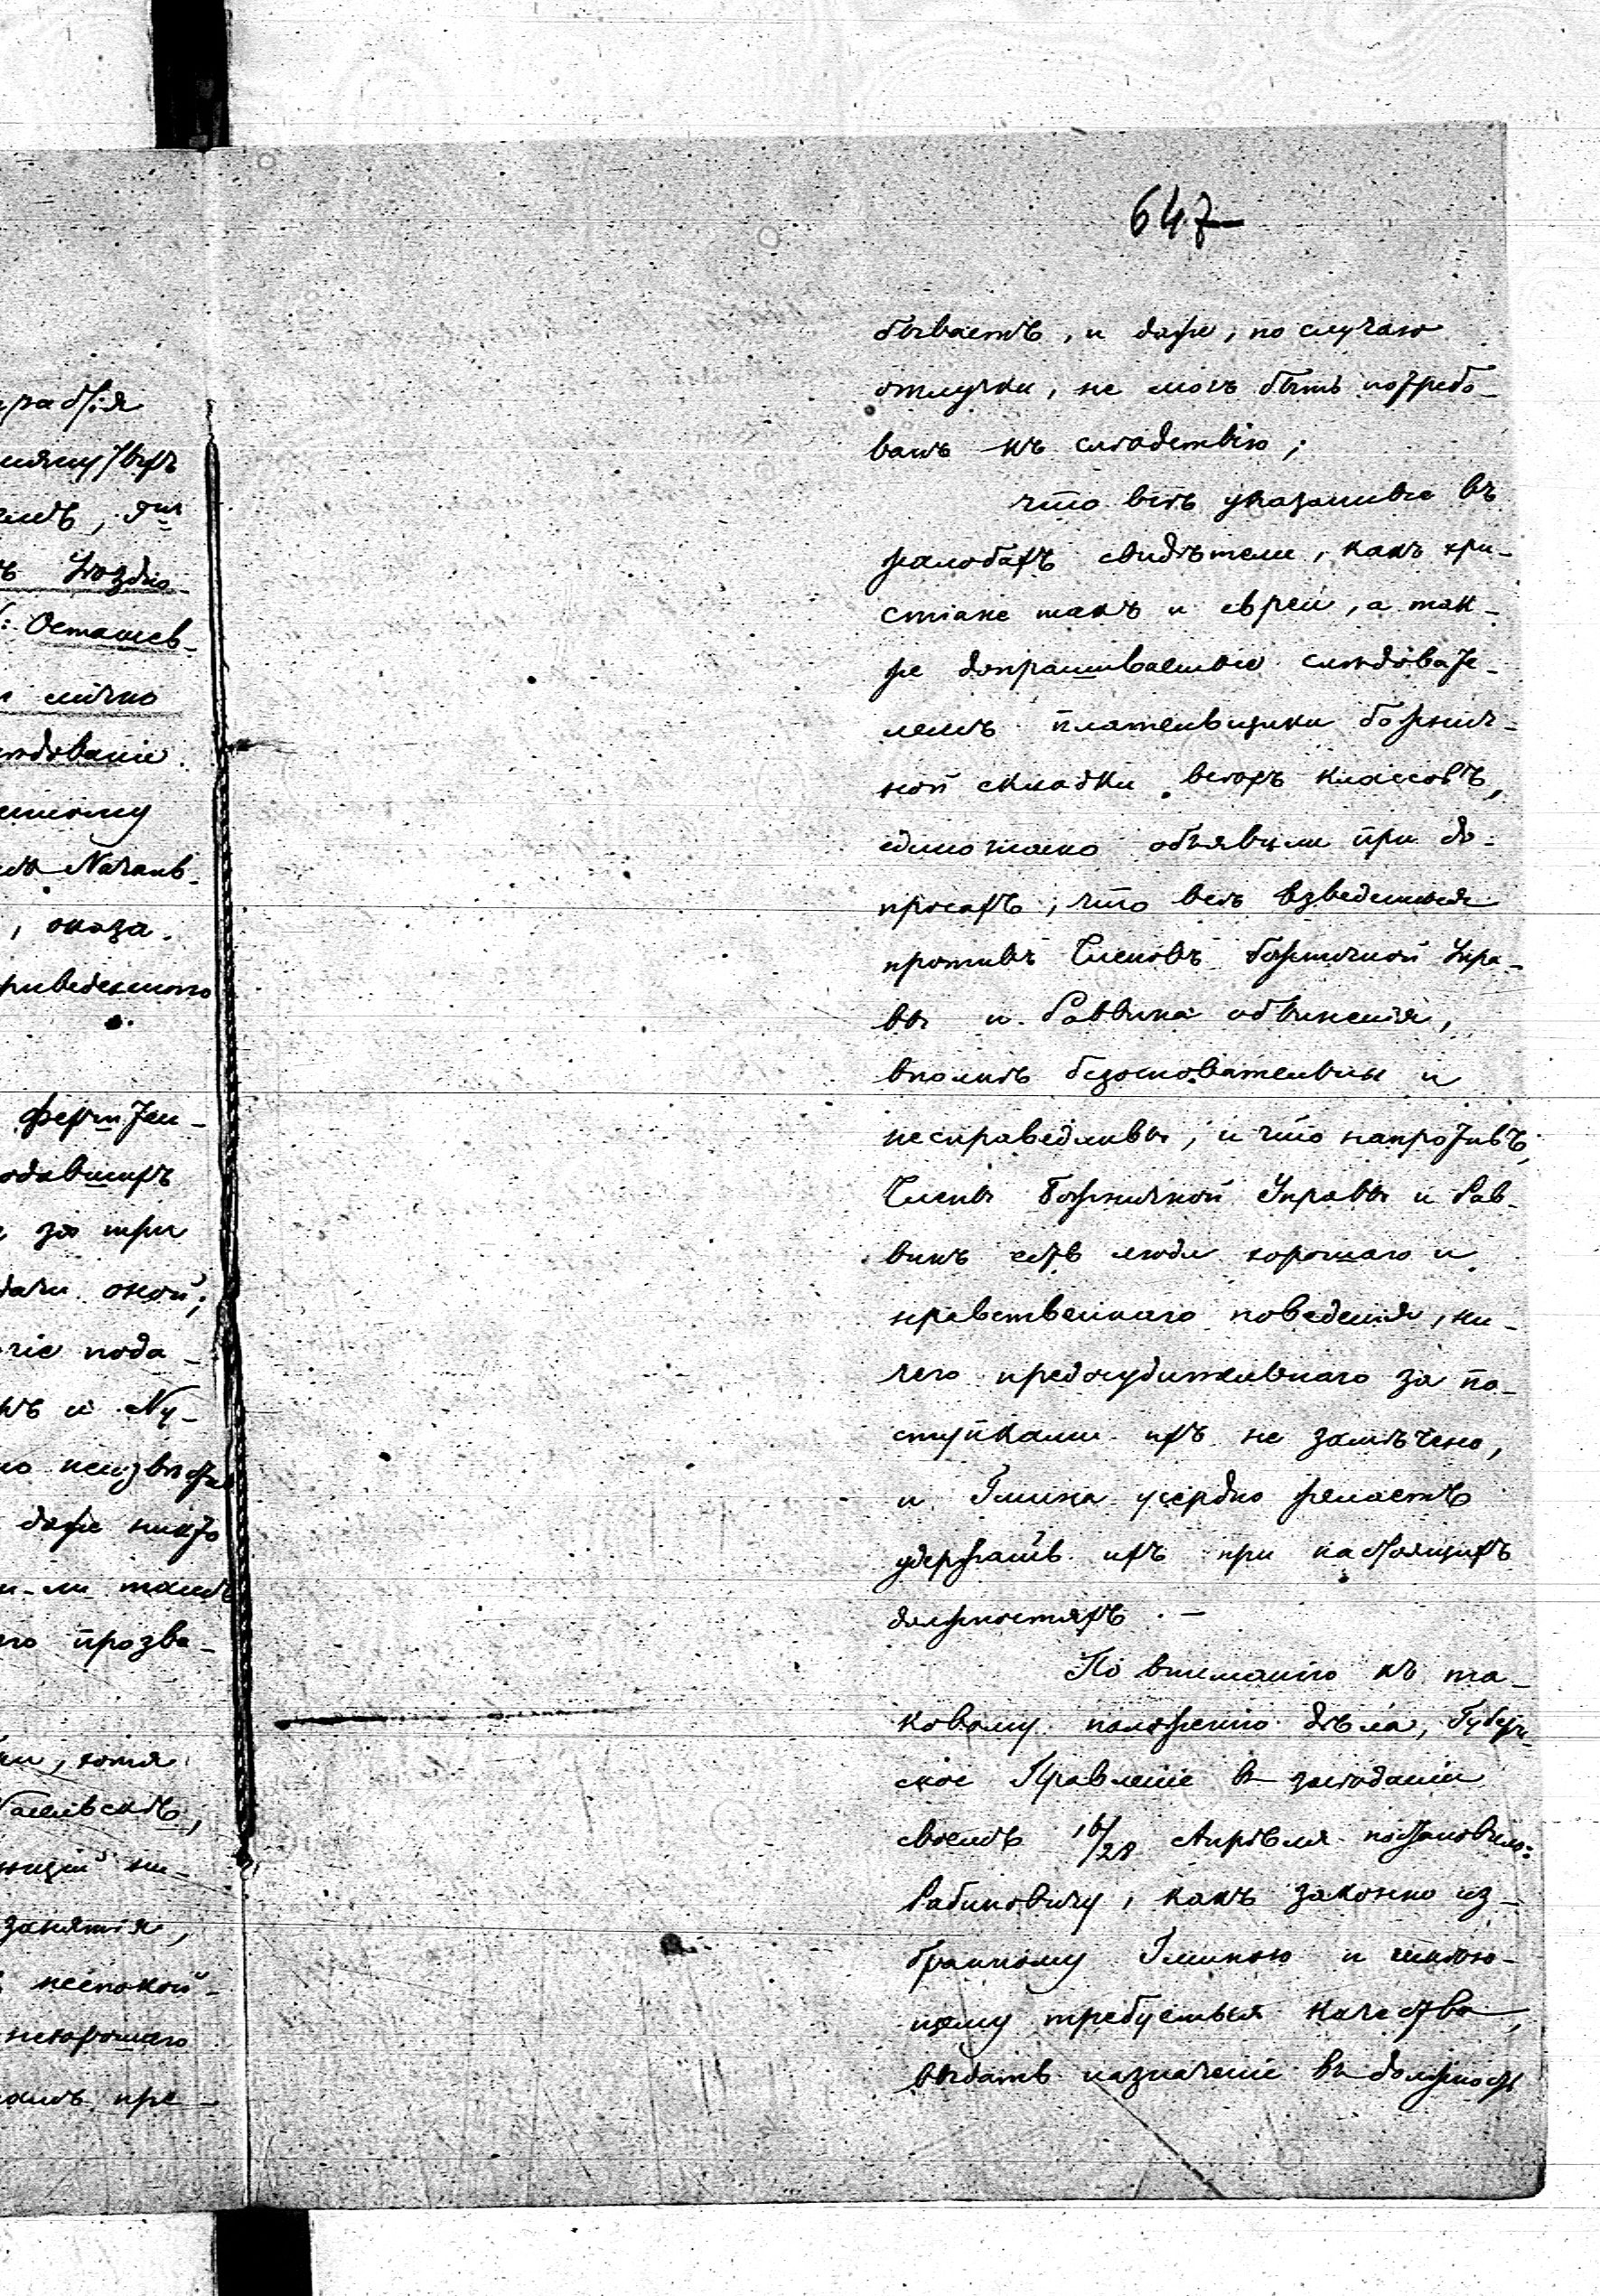 647
бываетъ, и даже, по случаю
отлучки, не могъ быть потребо-
ванъ къ слѣдствію;
что всѣ указанные въ
жалобахъ свидѣтели, какъ хри-
стіане такъ и евреи, а так-
же допрашиваемые слѣдовате-
лемъ плательщики божнич-
ной складки всѣхъ классовъ,
единогласно объявили при до-
просахъ, что всѣ взведенныя
противъ Членовъ Божничной Упра-
вы и Раввина обвиненія,
вполнѣ безосновательны и
несправедливы, и что напротивъ,
Члены Божничной Управы и Рав-
винъ суть люди хорошаго и
нравственнаго поведенія, ни-
чего предосудительнаго за по-
ступками ихъ не замѣчено,
и Гмина усердно желаетъ
удержать ихъ при настоящихъ
должностяхъ. —
По вниманію къ та-
ковому положенію дѣла, Губерн-
ское Правленіе въ засѣданіи
своемъ 16/28 Апрѣля постановило:
Рабиновичу, какъ законно из-
бранному Гминою и имѣю-
щему требуемыя качества,
выдать назначеніе въ должность
раб:ія
лично
ждованіе
, оказа
приведеннаго
одавшихъ
за три
дачи оной;
чіе пода-
ъ и Ну-
но неизвѣстно
даже никто
и-ли тамъ
его прозва-
и, хотя
занятія,
неспокой-
нехорошаго
пре-